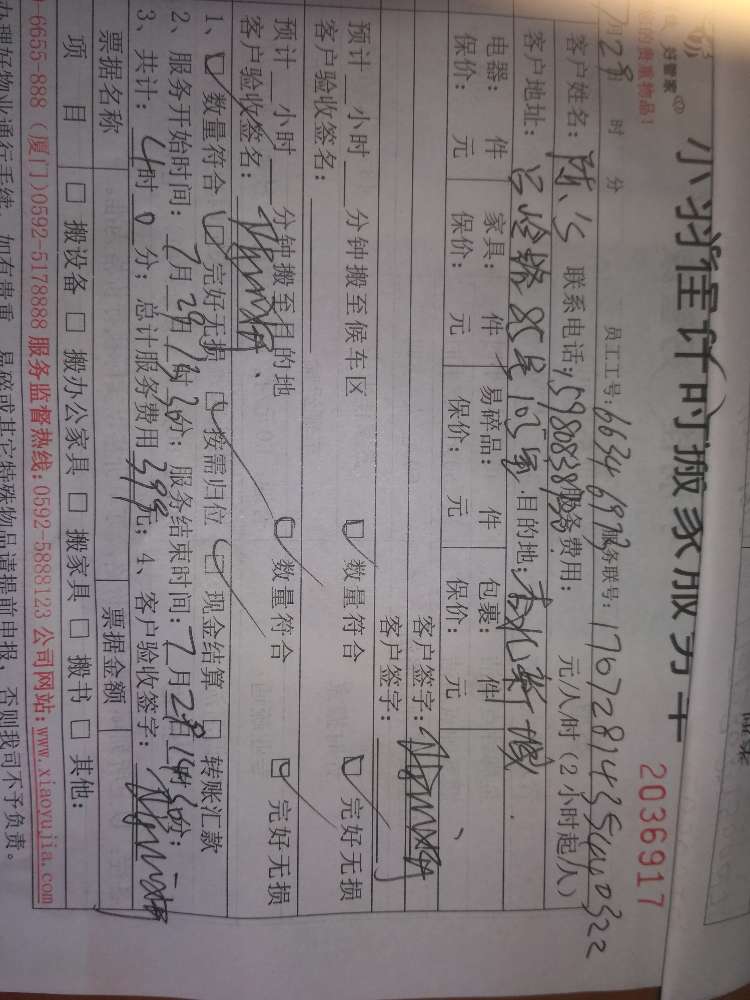 好管家
您的贵重物品!
小羽佳计时搬家服务卡
2036917
月28日 时 分 员工工号: 6634 6973 服务联号:
客户姓名: 陈 联系电话: 服务费用: 元/人/时(2小时起/人)
客户地址: 85号 目的地: 新城
电器: 件 家具: 件 易碎品: 件 包裹: 件
保价: 元 保价: 元 保价: 元 保价: 元
客户签字:
客户签字:
预计 小时 分钟搬至候车区 数量符合 完好无损
客户验收签名:
预计 小时 分钟搬至目的地 数量符合 完好无损
客户验收签名:
1、 数量符合 完好无损 按需归位 现金结算 转账汇款
2、服务开始时间: 7月28日 时30分; 服务结束时间: 7月28日 时30分;
3、共计: 4时0分; 总计服务费用399元; 4、客户验收签字:
票据名称 票据金额
项 目 搬设备 搬办公家具 搬家具 搬书 其他:
6655-888 (厦门)0592-5178888 服务监督热线:0592-5888123 公司网站:www.xiaoyujia.com
办理好物业通行手续,如有贵重、易碎或其它特殊物品请提前申报,否则我司不予负责。